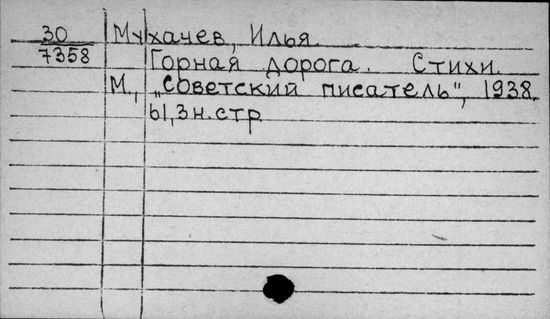 30 Мухачев, Илья.
7358 Горная дорога. Стихи.
М., „Советский писатель", 1938.
61, 3 н. стр